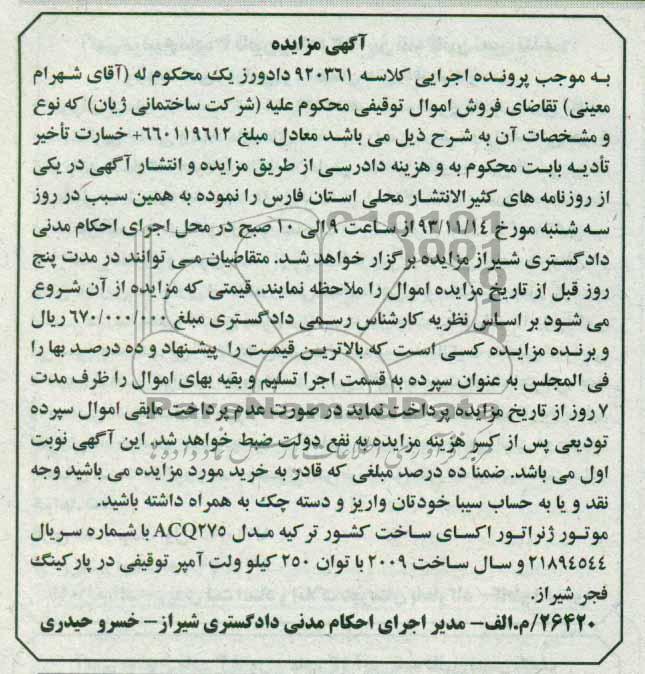 آگهی مزایده
به موجب پرونده اجرایی کلاسه ۹۲۰۳۶۱ دادورز یک محکوم له (آقای شهرام
معینی) تقاضای فروش اموال توقیفی محکوم علیه (شرکت ساختمانی ژیان) که نوع
و مشخصات آن به شرح ذیل می باشد معادل مبلغ ۶۶۰۱۱۹۶۱۲+ خسارت تأخیر
تأدیه بابت محکوم به و هزینه دادرسی از طریق مزایده و انتشار آگهی در یکی
از روزنامه های کثیرالانتشار محلی استان فارس را نموده به همین سبب در روز
سه شنبه مورخ ۹۳/۱۱/۱۴ از ساعت ۹ الی ۱۰ صبح در محل اجرای احکام مدنی
دادگستری شیراز مزایده برگزار خواهد شد. متقاضیان می توانند در مدت پنج
روز قبل از تاریخ مزایده اموال را ملاحظه نمایند. قیمتی که مزایده از آن شروع
می شود بر اساس نظریه کارشناس رسمی دادگستری مبلغ ۶۷۰/۰۰۰/۰۰۰ ریال
و برنده مزایده کسی است که بالاترین قیمت را پیشنهاد و ده درصد بها را
فی المجلس به عنوان سپرده به قسمت اجرا تسلیم و بقیه بهای اموال را ظرف مدت
۷ روز از تاریخ مزایده پرداخت نماید در صورت عدم پرداخت مابقی اموال سپرده
تودیعی پس از کسر هزینه مزایده به نفع دولت ضبط خواهد شد. این آگهی نوبت
اول می باشد. ضمناً ده درصد مبلغی که قادر به خرید مورد مزایده می باشید وجه
نقد و یا به حساب سیبا خودتان واریز و دسته چک به همراه داشته باشید.
موتور ژنراتور اکسای ساخت کشور ترکیه مدل ACQ۲۷۵ با شماره سریال
۲۱۸۹۴۵۴۴ و سال ساخت ۲۰۰۹ با توان ۲۵۰ کیلو ولت آمپر توقیفی در پارکینگ
فجر شیراز.
۲۶۴۲۰/م.الف- مدیر اجرای احکام مدنی دادگستری شیراز- خسرو حیدری
ParsNamadData